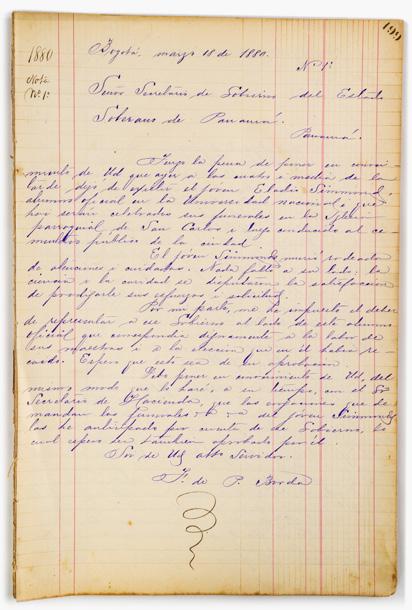 199
1880
Nota
Nº 1º
Bogotá, marzo 18 de 1880.
Nº 1º
Señor Secretario de Gobierno del Estado
Soberano de Panamá.
Panamá.
Tengo la pena de poner en conoci-
miento de Ud que ayer a las cuatro i media de la
tarde dejó de existir el jóven Eladio Simmonds,
alumno oficial en la Universidad nacional, i que
hoi serán celebrados sus funerales en la Iglesia
parroquial de San Carlos i luego conducido al ce-
menterio público de la ciudad.
El jóven Simmonds murió rodeado
de atenciones i cuidados. Nada faltó a su lado: la
ciencia i la caridad se disputaron la satisfaccion
de prodigarle sus esfuerzos i solicitud.
Por mi parte, me he impuesto el deber
de representar a ese Gobierno al lado de este alumno
oficial que correspondia dignamente a la labor de
sus maestros i a la eleccion que en él habia re-
caido. Espero que esto sea de su aprobacion.
Debo poner en conocimiento de Ud, del
mismo modo que lo haré, a su tiempo, con el Sr
Secretario de Hacienda, que las erogaciones que de-
mandan los funerales del jóven Simmonds
las he anticipado por cuenta de ese Gobierno, lo
cual espero será tambien aprobado por él.
Soi de Ud atto Servidor.
F. de P. Borda